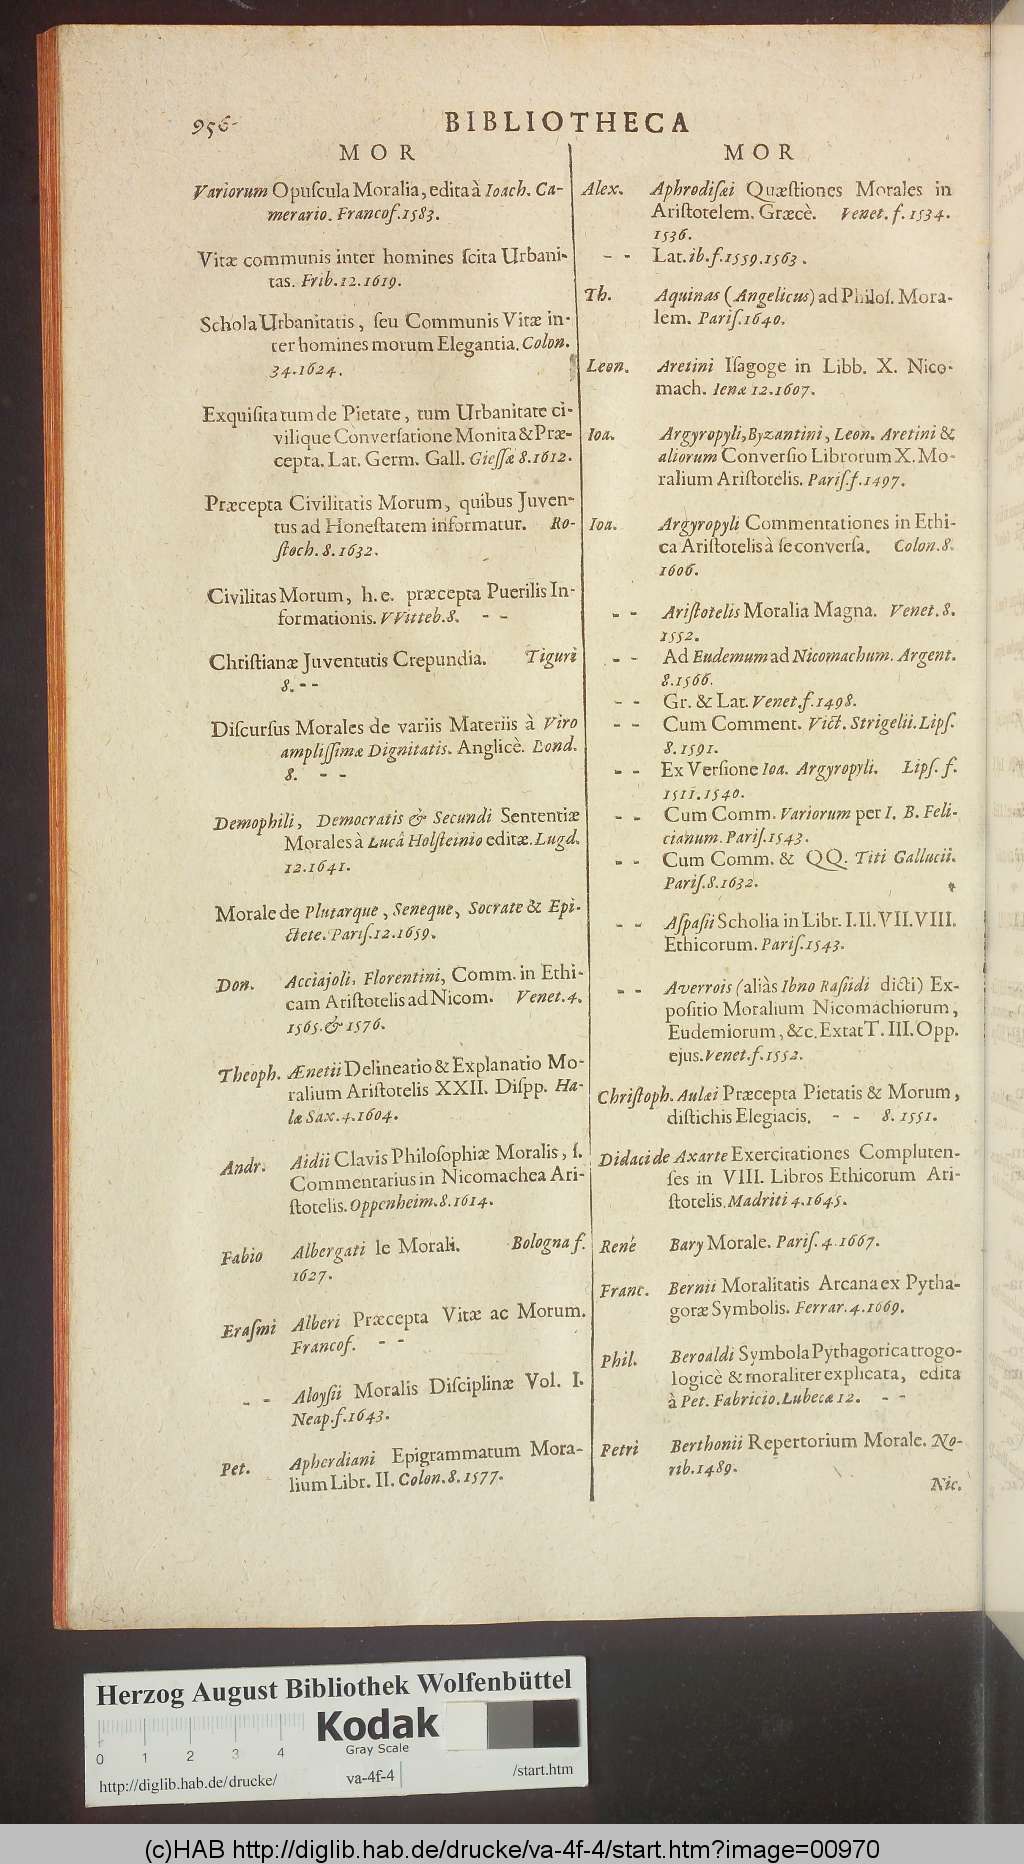 956
BIBLIOTHECA
MOR
Variorum Opuſcula Moralia, edita à Ioach. Ca-
merario. Francof. 1583.
Vitæ communis inter homines ſcita Urbani-
tas. Frib. 12. 1619.
Schola Urbanitatis, ſeu Communis Vitæ in-
ter homines morum Elegantia. Colon.
34. 1624.
Exquiſita tum de Pietate, tum Urbanitate ci-
vilique Converſatione Monita & Præ-
cepta. Lat. Germ. Gall. Gieſſæ 8. 1612.
Præcepta Civilitatis Morum, quibus Juven-
tus ad Honeſtatem informatur. Ro-
ſtoch. 8. 1632.
Civilitas Morum, h. e. præcepta Puerilis In-
formationis. VVitteb. 8. - -
Chriſtianæ Juventutis Crepundia. Tiguri
8. - -
Diſcurſus Morales de variis Materiis à Viro
ampliſſimæ Dignitatis. Anglicè. Lond.
8. - -
Demophili, Democratis & Secundi Sententiæ
Morales à Lucâ Holſteinio editæ. Lugd.
12. 1641.
Morale de Plutarque, Seneque, Socrate & Epi-
ctete. Pariſ. 12. 1659.
Don. Acciajoli, Florentini, Comm. in Ethi-
cam Ariſtotelis ad Nicom. Venet. 4.
1565. & 1576.
Theoph. Ænetii Delineatio & Explanatio Mo-
ralium Ariſtotelis XXII. Diſpp. Ha-
læ Sax. 4. 1604.
Andr. Aidii Clavis Philoſophiæ Moralis, ſ.
Commentarius in Nicomachea Ari-
ſtotelis. Oppenheim. 8. 1614.
Fabio Albergati le Morali. Bologna f.
1627.
Eraſmi Alberi Præcepta Vitæ ac Morum.
Francof. - -
- - Aloyſii Moralis Diſciplinæ Vol. I.
Neap. f. 1643.
Pet. Apherdiani Epigrammatum Mora-
lium Libr. II. Colon. 8. 1577.
MOR
Alex. Aphrodiſæi Quæſtiones Morales in
Ariſtotelem. Græcè. Venet. f. 1534.
1536.
- - Lat. ib. f. 1559. 1563.
Th. Aquinas (Angelicus) ad Philoſ. Mora-
lem. Pariſ. 1640.
Leon. Aretini Iſagoge in Libb. X. Nico-
mach. Ienæ 12. 1607.
Ioa. Argyropyli, Byzantini, Leon. Aretini &
aliorum Converſio Librorum X. Mo-
ralium Ariſtotelis. Pariſ. f. 1497.
Ioa. Argyropyli Commentationes in Ethi-
ca Ariſtotelis à ſe converſa. Colon. 8.
1606.
- - Ariſtotelis Moralia Magna. Venet. 8.
1552.
- - Ad Eudemum ad Nicomachum. Argent.
8. 1566.
- - Gr. & Lat. Venet. f. 1498.
- - Cum Comment. Vict. Strigelii. Lipſ.
8. 1591.
- - Ex Verſione Ioa. Argyropyli. Lipſ. f.
1511. 1540.
- - Cum Comm. Variorum per I. B. Feli-
cianum. Pariſ. 1543.
- - Cum Comm. & QQ. Titi Gallucii.
Pariſ. 8. 1632.
- - Aſpaſii Scholia in Libr. I. II. VII. VIII.
Ethicorum. Pariſ. 1543.
- - Averrois (aliàs Ibno Raſiidi dicti) Ex-
poſitio Moralium Nicomachiorum,
Eudemiorum, &c. Extat T. III. Opp.
ejus. Venet. f. 1552.
Chriſtoph. Aulæi Præcepta Pietatis & Morum,
diſtichis Elegiacis. - - 8. 1551.
Didaci de Axarte Exercitationes Compluten-
ſes in VIII. Libros Ethicorum Ari-
ſtotelis. Madriti 4. 1645.
René Bary Morale. Pariſ. 4. 1667.
Franc. Bernii Moralitatis Arcana ex Pytha-
goræ Symbolis. Ferrar. 4. 1669.
Phil. Beroaldi Symbola Pythagorica trogo-
logicè & moraliter explicata, edita
à Pet. Fabricio. Lubecæ 12. - -
Petri Berthonii Repertorium Morale. No-
rib. 1489.
Nic.
Herzog August Bibliothek Wolfenbüttel
Kodak
Gray Scale
0 1 2 3 4
http://diglib.hab.de/drucke/ va-4f-4 /start.htm
(c)HAB http://diglib.hab.de/drucke/va-4f-4/start.htm?image=00970